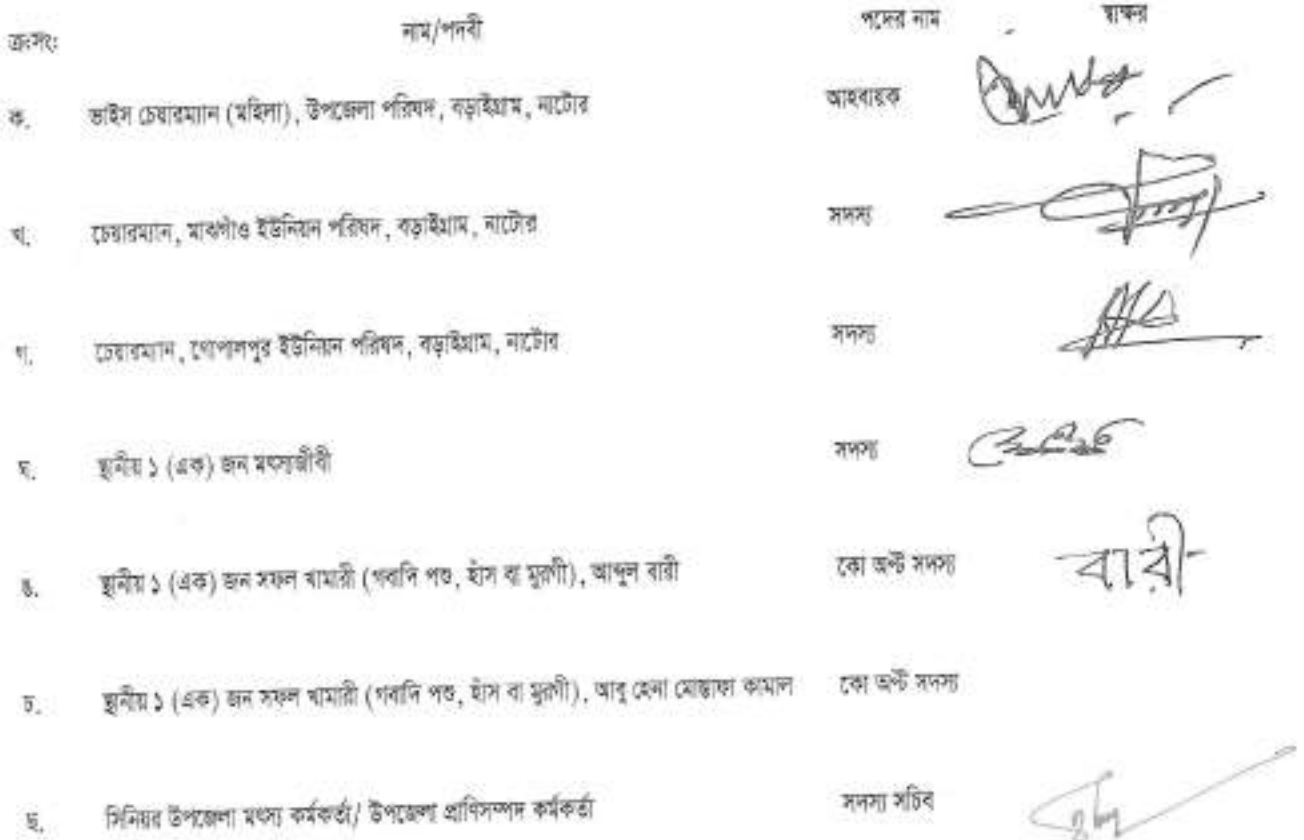 ক্রঃসংঃ নাম/পদবী পদের নাম স্বাক্ষর
ক. ভাইস চেয়ারম্যান (মহিলা), উপজেলা পরিষদ, বড়াইগ্রাম, নাটোর আহবায়ক
খ. চেয়ারম্যান, মাঝগাঁও ইউনিয়ন পরিষদ, বড়াইগ্রাম, নাটোর সদস্য
গ. চেয়ারম্যান, গোপালপুর ইউনিয়ন পরিষদ, বড়াইগ্রাম, নাটোর সদস্য
ঘ. স্থানীয় ১ (এক) জন মৎস্যজীবী সদস্য
ঙ. স্থানীয় ১ (এক) জন সফল খামারী (গবাদি পশু, হাঁস বা মুরগী), আব্দুল বারী কো অপ্ট সদস্য বারী
চ. স্থানীয় ১ (এক) জন সফল খামারী (গবাদি পশু, হাঁস বা মুরগী), আবু হেনা মোস্তাফা কামাল কো অপ্ট সদস্য
ছ. সিনিয়র উপজেলা মৎস্য কর্মকর্তা/ উপজেলা প্রাণিসম্পদ কর্মকর্তা সদস্য সচিব